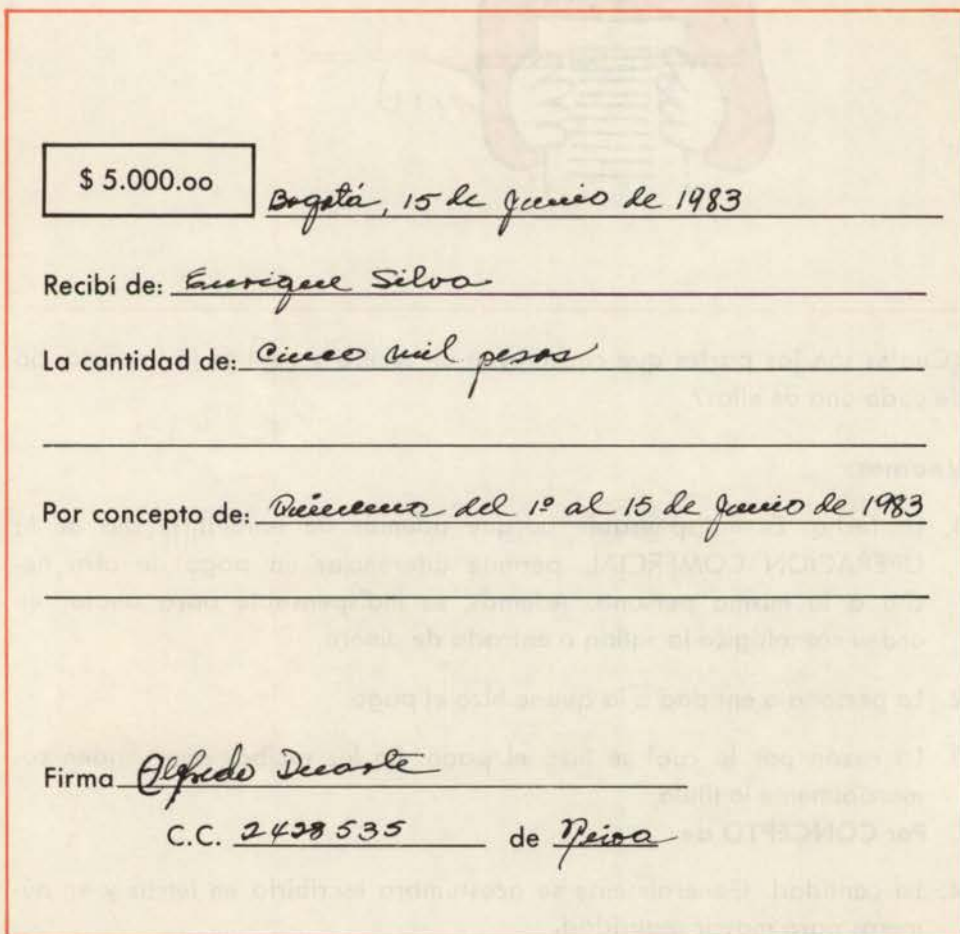 $ 5.000.oo
Bogotá, 15 de Junio de 1983
Recibí de: Enrique Silva
La cantidad de: Cinco mil pesos
Por concepto de: Quincena del 1º al 15 de Junio de 1983
Firma Alfredo Duarte
C.C. 2428535 de Neiva